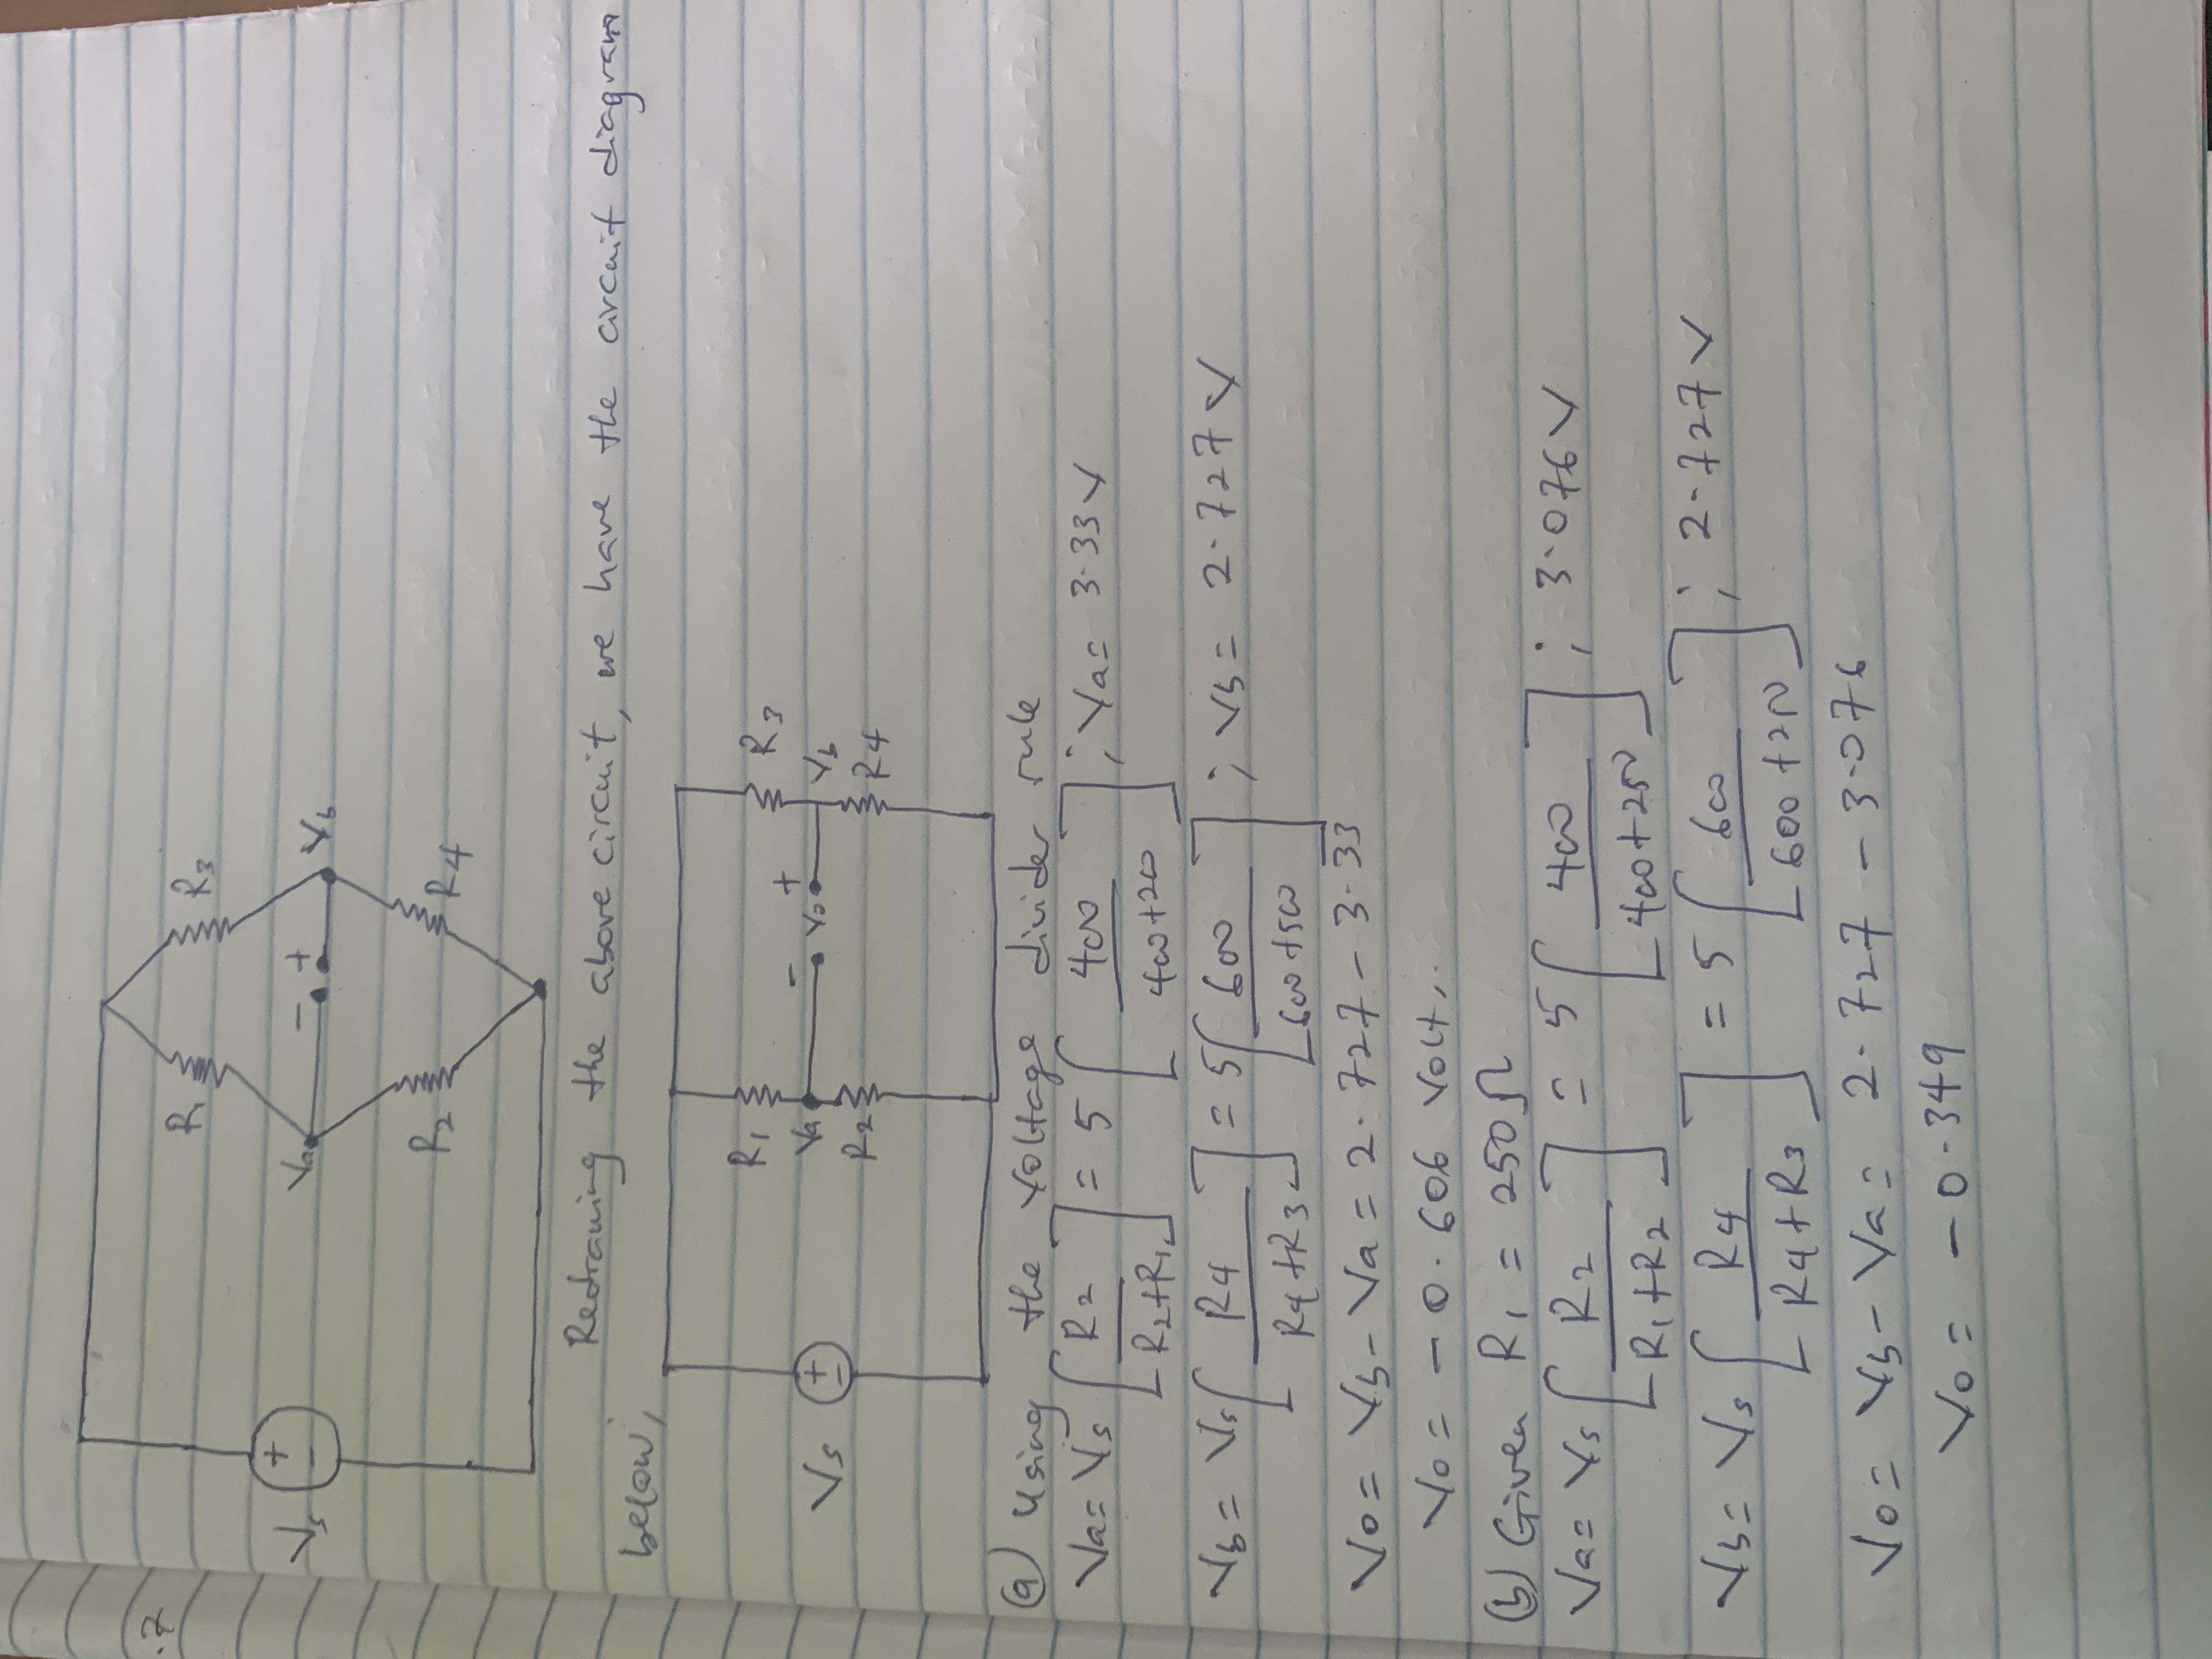 .7
R1 R3
Vs + - Va - + Vb
R2 R4
Redrawing the above circuit, we have the circuit diagram
below,
R1 R3
Vs + - Va - Vo + Vb
R2 R4
(a) Using the voltage divider rule
Va = Vs [R2 / R2+R1] = 5 [400 / 400+200] ; Va = 3.33V
Vb = Vs [R4 / R4+R3] = 5 [600 / 600+500] ; Vb = 2.727V
Vo = Vb - Va = 2.727 - 3.33
Vo = -0.606 Volt..
(b) Given R1 = 250Ω
Va = Vs [R2 / R1+R2] = 5 [400 / 400+250] ; 3.076V
Vb = Vs [R4 / R4+R3] = 5 [600 / 600+250] ; 2.727V
Vo = Vb - Va = 2.727 - 3.076
Vo = -0.349